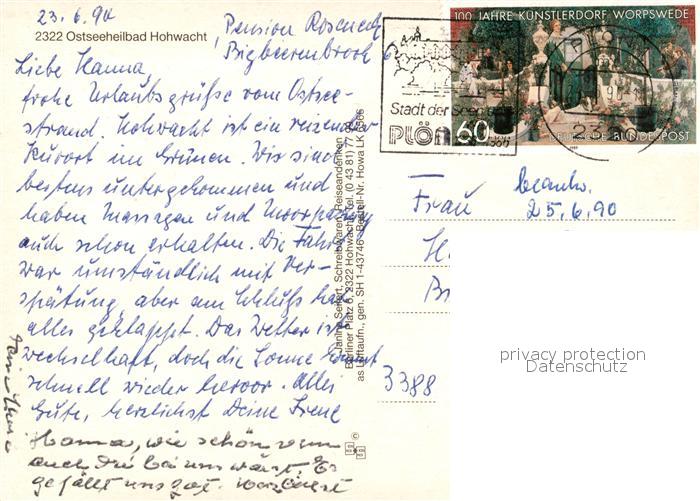 23.6.90
Pension Roseneck
2322 Ostseeheilbad Hohwacht
Liebe Hanna,
frohe Urlaubsgrüße vom Ostsee-
strand. Hohwacht ist ein reizender
Kurort im Grünen. Wir sind
bestens untergekommen und
haben Massagen und Moorpackung
auch schon erhalten. Die Fahrt
war umständlich mit Ver-
spätung, aber am Schluß hat
alles geklappt. Das Wetter ist
wechselhaft, doch die Sonne kommt
schnell wieder hervor. Alles
Gute, herzlichst Deine Irene
Hanna, wie schön wenn
auch Du bei uns wärst. Es
gefällt uns gut.
Janine Seifert, Schreibwaren, Reiseandenken
Berliner Platz 6, 2322 Hohwacht, Tel. (0 43 81)
as Luftaufn., gen. SH 1-43746 Bestell-Nr. Howa LK
100 JAHRE KÜNSTLERDORF WORPSWEDE
60
DEUTSCHE BUNDESPOST
Stadt der
PLÖN
Frau
beantw.
25.6.90
3388
privacy protection
Datenschutz